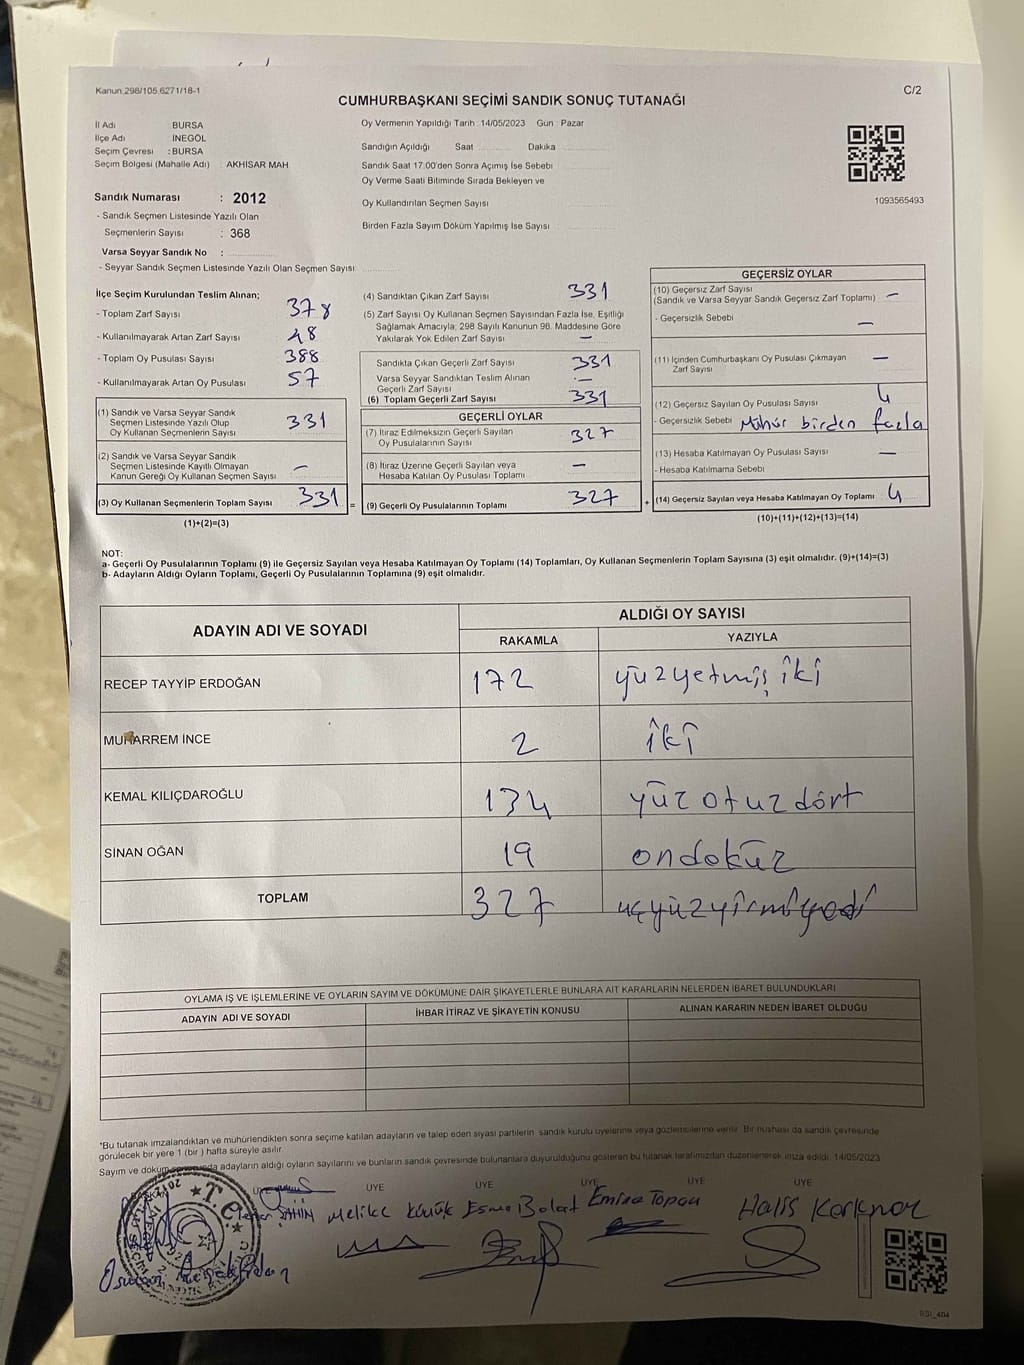 Kanun.298/105.6271/18-1
C/2
CUMHURBAŞKANI SEÇİMİ SANDIK SONUÇ TUTANAĞI
İl Adı BURSA
İlçe Adı İNEGÖL
Seçim Çevresi :BURSA
Seçim Bölgesi (Mahalle Adı) : AKHİSAR MAH.
Sandık Numarası : 2012
- Sandık Seçmen Listesinde Yazılı Olan
Seçmenlerin Sayısı : 368
Varsa Seyyar Sandık No :
- Seyyar Sandık Seçmen Listesinde Yazılı Olan Seçmen Sayısı
Oy Vermenin Yapıldığı Tarih :14/05/2023 Gün : Pazar
Sandığın Açıldığı Saat Dakika
Sandık Saat 17:00'den Sonra Açımış İse Sebebi
Oy Verme Saati Bitiminde Sırada Bekleyen ve
Oy Kullandırılan Seçmen Sayısı
Birden Fazla Sayım Döküm Yapılmış İse Sayısı
1093565493
İlçe Seçim Kurulundan Teslim Alınan;
- Toplam Zarf Sayısı 378
- Kullanılmayarak Artan Zarf Sayısı 48
- Toplam Oy Pusulası Sayısı 388
- Kullanılmayarak Artan Oy Pusulası 57
(1) Sandık ve Varsa Seyyar Sandık
Seçmen Listesinde Yazılı Olup
Oy Kullanan Seçmenlerin Sayısı 331
(2) Sandık ve Varsa Seyyar Sandık
Seçmen Listesinde Kayıtlı Olmayan
Kanun Gereği Oy Kullanan Seçmen Sayısı –
(3) Oy Kullanan Seçmenlerin Toplam Sayısı 331 =
(1)+(2)=(3)
(4) Sandıktan Çıkan Zarf Sayısı 331
(5) Zarf Sayısı Oy Kullanan Seçmen Sayısından Fazla İse, Eşitliği
Sağlamak Amacıyla; 298 Sayılı Kanunun 98. Maddesine Göre
Yakılarak Yok Edilen Zarf Sayısı –
Sandıkta Çıkan Geçerli Zarf Sayısı 331
Varsa Seyyar Sandıktan Teslim Alınan
Geçerli Zarf Sayısı –
(6) Toplam Geçerli Zarf Sayısı 331
GEÇERLİ OYLAR
(7) İtiraz Edilmeksizin Geçerli Sayılan
Oy Pusulalarının Sayısı 327
(8) İtiraz Üzerine Geçerli Sayılan veya
Hesaba Katılan Oy Pusulası Toplamı –
(9) Geçerli Oy Pusulalarının Toplamı 327 +
GEÇERSİZ OYLAR
(10) Geçersiz Zarf Sayısı
(Sandık ve Varsa Seyyar Sandık Geçersiz Zarf Toplamı) –
- Geçersizlik Sebebi –
(11) İçinden Cumhurbaşkanı Oy Pusulası Çıkmayan
Zarf Sayısı –
(12) Geçersiz Sayılan Oy Pusulası Sayısı 4
- Geçersizlik Sebebi Mühür birden fazla
(13) Hesaba Katılmayan Oy Pusulası Sayısı –
- Hesaba Katılmama Sebebi
(14) Geçersiz Sayılan veya Hesaba Katılmayan Oy Toplamı 4
(10)+(11)+(12)+(13)=(14)
NOT:
a- Geçerli Oy Pusulalarının Toplamı (9) ile Geçersiz Sayılan veya Hesaba Katılmayan Oy Toplamı (14) Toplamları, Oy Kullanan Seçmenlerin Toplam Sayısına (3) eşit olmalıdır. (9)+(14)=(3)
b- Adayların Aldığı Oyların Toplamı, Geçerli Oy Pusulalarının Toplamına (9) eşit olmalıdır.
ADAYIN ADI VE SOYADI ALDIĞI OY SAYISI
RAKAMLA YAZIYLA
RECEP TAYYİP ERDOĞAN 172 yüzyetmiş iki
MUHARREM İNCE 2 iki
KEMAL KILIÇDAROĞLU 134 yüz otuz dört
SİNAN OĞAN 19 ondokuz
TOPLAM 327 üçyüzyirmiyedi
OYLAMA İŞ VE İŞLEMLERİNE VE OYLARIN SAYIM VE DÖKÜMÜNE DAİR ŞİKAYETLERLE BUNLARA AİT KARARLARIN NELERDEN İBARET BULUNDUKLARI
ADAYIN ADI VE SOYADI İHBAR İTİRAZ VE ŞİKAYETİN KONUSU ALINAN KARARIN NEDEN İBARET OLDUĞU
*Bu tutanak imzalandıktan ve mühürlendikten sonra seçime katılan adayların ve talep eden siyasi partilerin sandık kurulu üyelerine veya gözlemcilerine verilir. Bir nüshası da sandık çevresinde
görülecek bir yere 1 (bir ) hafta süreyle asılır.
Sayım ve döküm sonucunda adayların aldığı oyların sayılarını ve bunların sandık çevresinde bulunanlara duyurulduğunu gösteren bu tutanak tarafımızdan düzenlenerek imza edildi. 14/05/2023
BAŞKAN ÜYE ÜYE ÜYE ÜYE ÜYE
ŞAHİN Melike Küçük Esma Bolat Emine Topçu Halis Korkmaz
Osman
T.C.
SSI_404